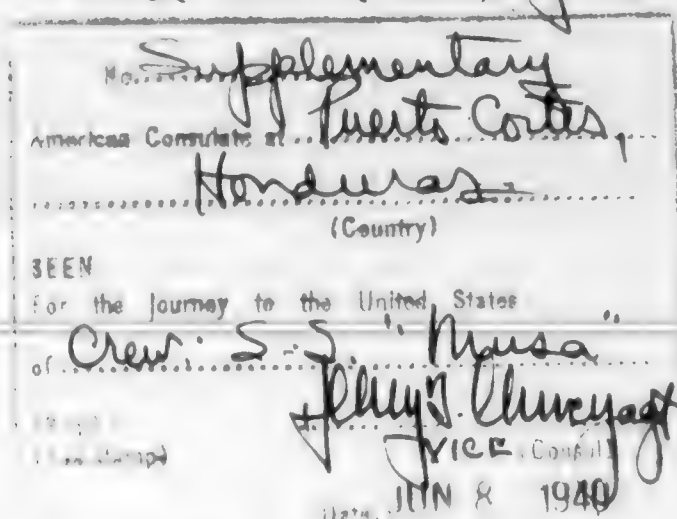 No. Supplementary
American Consulate at Puerto Cortes,
Honduras
(Country)
SEEN
For the Journey to the United States
of Crew: S.S. "Musa"
VICE Consul
Date JUN 8 1940